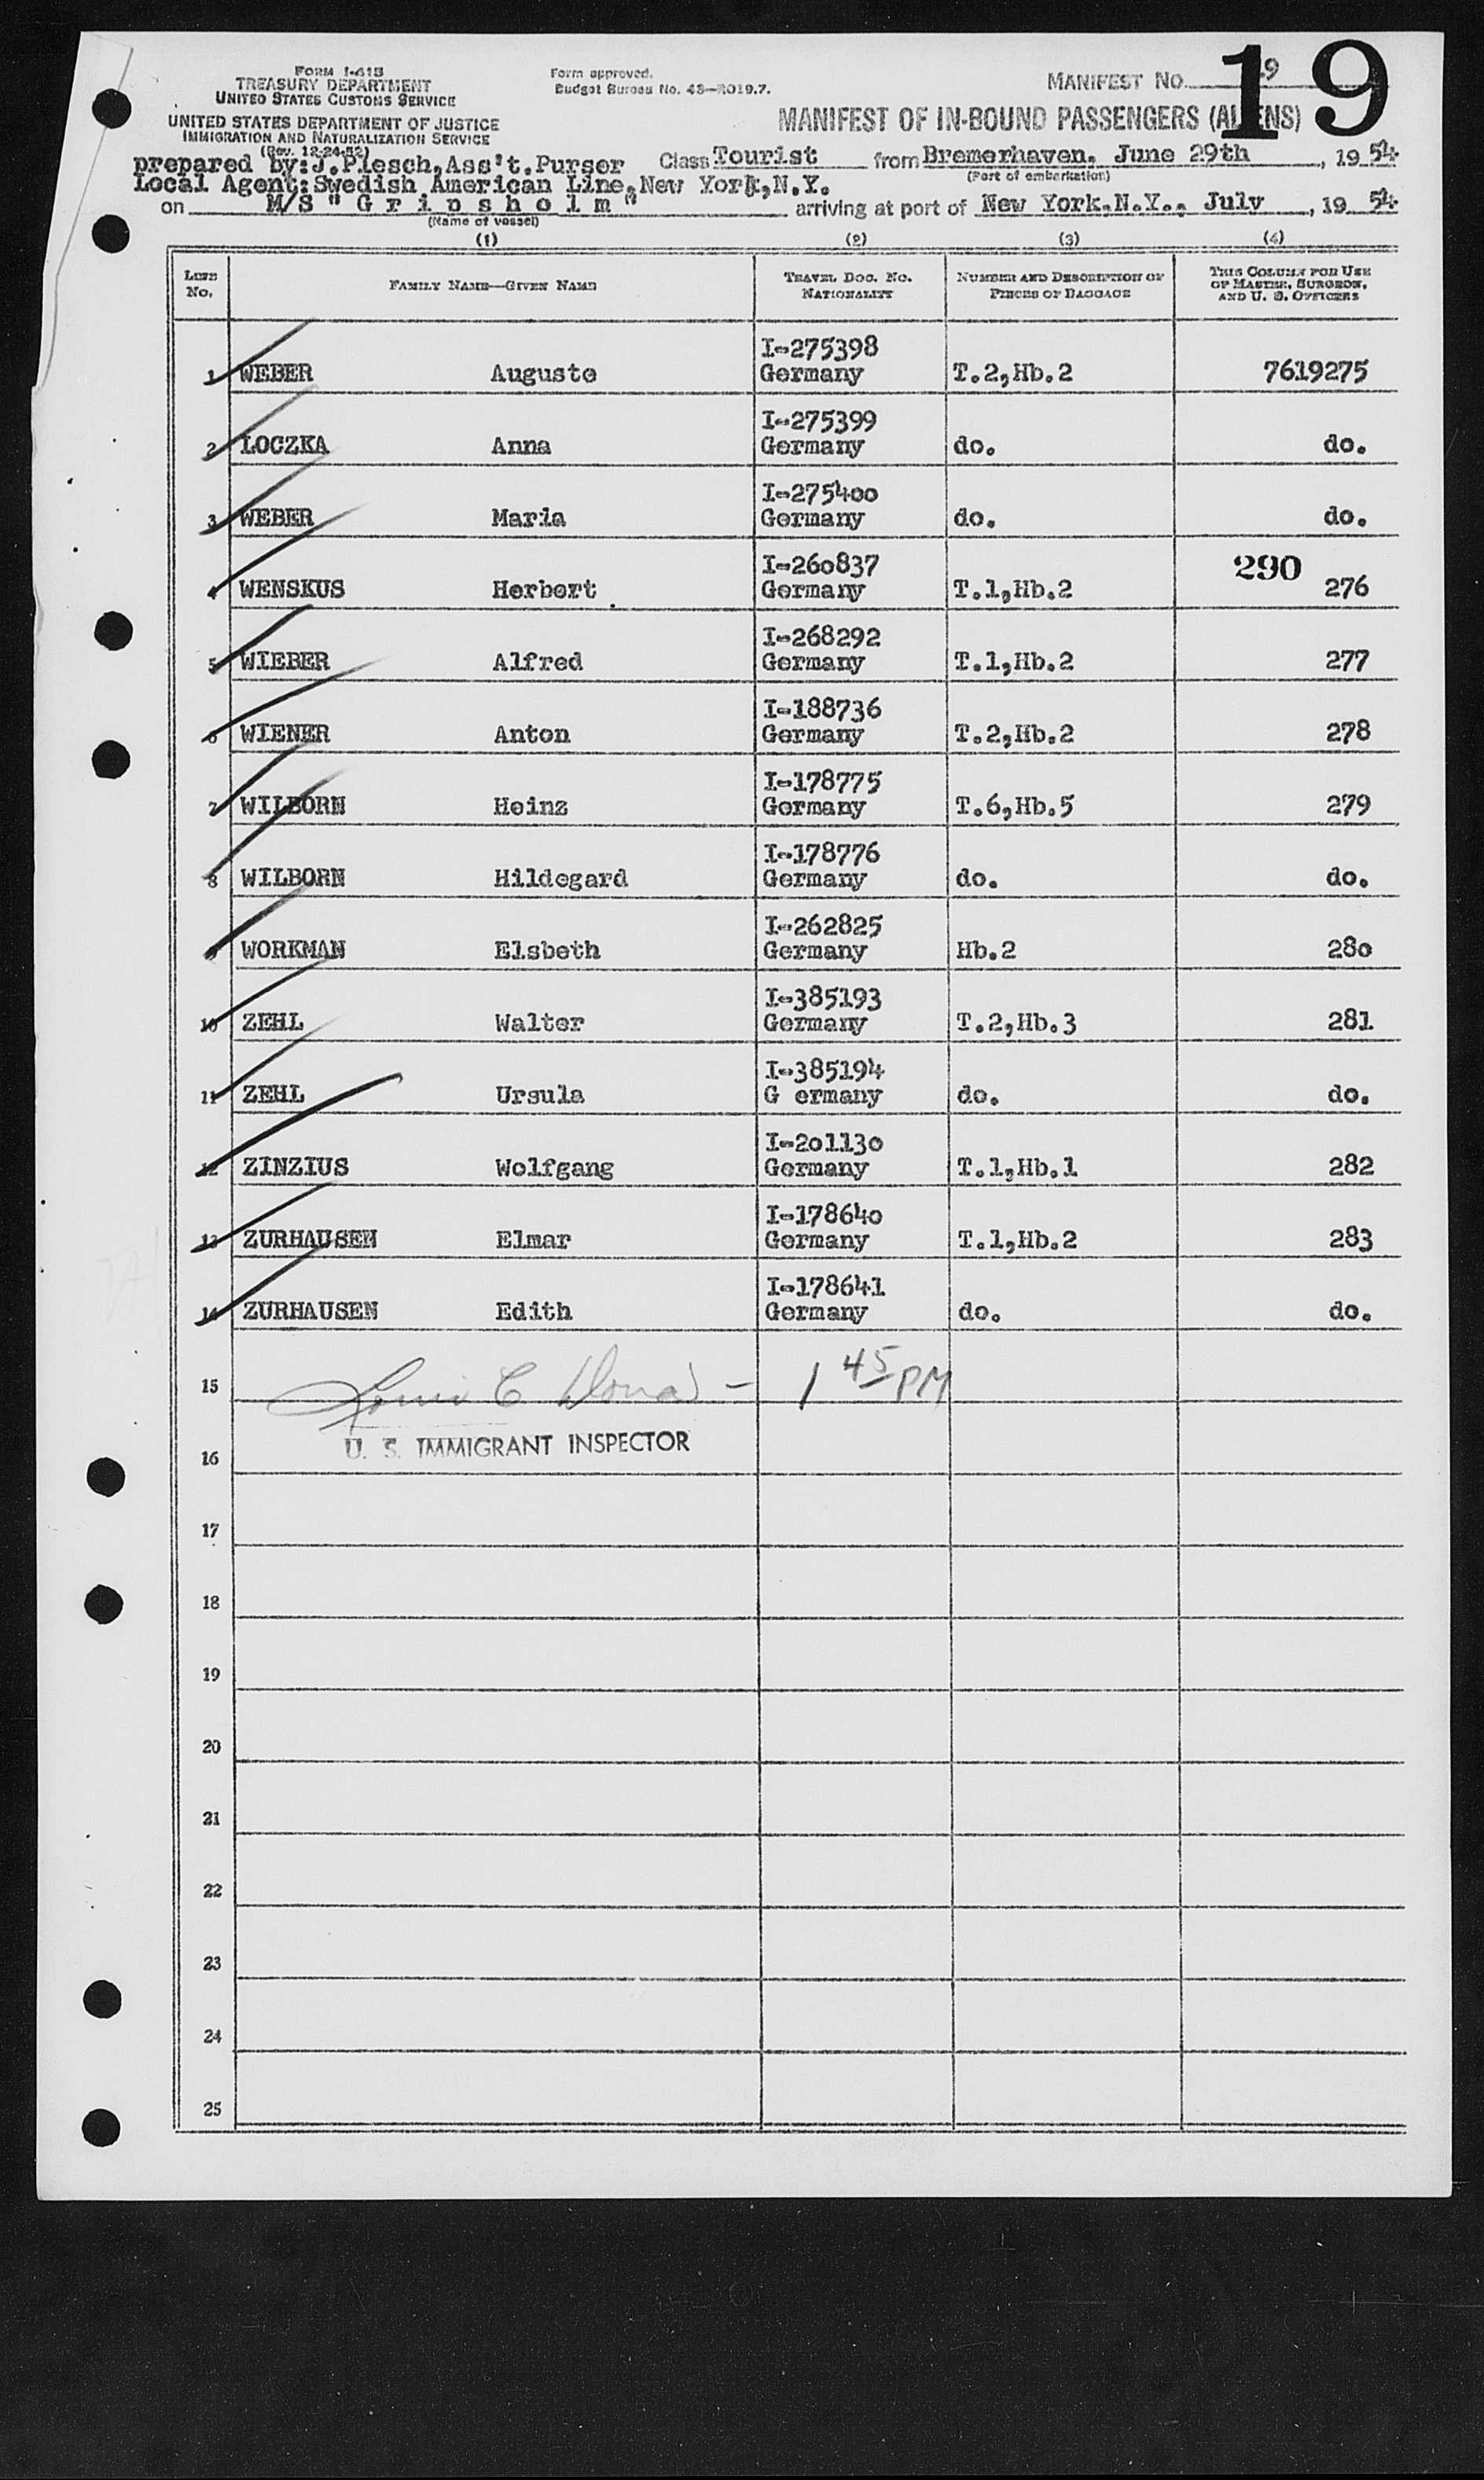 FORM I-418
TREASURY DEPARTMENT
UNITED STATES CUSTOMS SERVICE
UNITED STATES DEPARTMENT OF JUSTICE
IMMIGRATION AND NATURALIZATION SERVICE
(Rev. 12-24-52)
Form approved.
Budget Bureau No. 43—R019.7.
MANIFEST No. 19
19
MANIFEST OF IN-BOUND PASSENGERS (ALIENS)
prepared by: J.Plesch,Ass't.Purser Class Tourist from Bremerhaven. June 29th, 1954
(Port of embarkation)
Local Agent: Swedish American Line, New York, N.Y.
on M/S " G r i p s h o l m " arriving at port of New York.N.Y., July, 1954
(Name of vessel)
(1) (2) (3) (4)
LINE No. FAMILY NAME—GIVEN NAME TRAVEL DOC. NO. NATIONALITY NUMBER AND DESCRIPTION OF PIECES OF BAGGAGE THIS COLUMN FOR USE OF MASTER, SURGEON, AND U. S. OFFICERS
I-275398
1 WEBER Auguste Germany T.2,Hb.2 7619275
I-275399
2 LOCZKA Anna Germany do. do.
I-275400
3 WEBER Maria Germany do. do.
I-260837 290
4 WENSKUS Herbert Germany T.1,Hb.2 276
I-268292
5 WIEBER Alfred Germany T.1,Hb.2 277
I-188736
6 WIENER Anton Germany T.2,Hb.2 278
I-178775
7 WILBORN Heinz Germany T.6,Hb.5 279
I-178776
8 WILBORN Hildegard Germany do. do.
I-262825
9 WORKMAN Elsbeth Germany Hb.2 280
I-385193
10 ZEHL Walter Germany T.2,Hb.3 281
I-385194
11 ZEHL Ursula G ermany do. do.
I-201130
12 ZINZIUS Wolfgang Germany T.1,Hb.1 282
I-178640
13 ZURHAUSEN Elmar Germany T.1,Hb.2 283
I-178641
14 ZURHAUSEN Edith Germany do. do.
15 Louis C - 1 45 PM
U. S. IMMIGRANT INSPECTOR
16
17
18
19
20
21
22
23
24
25